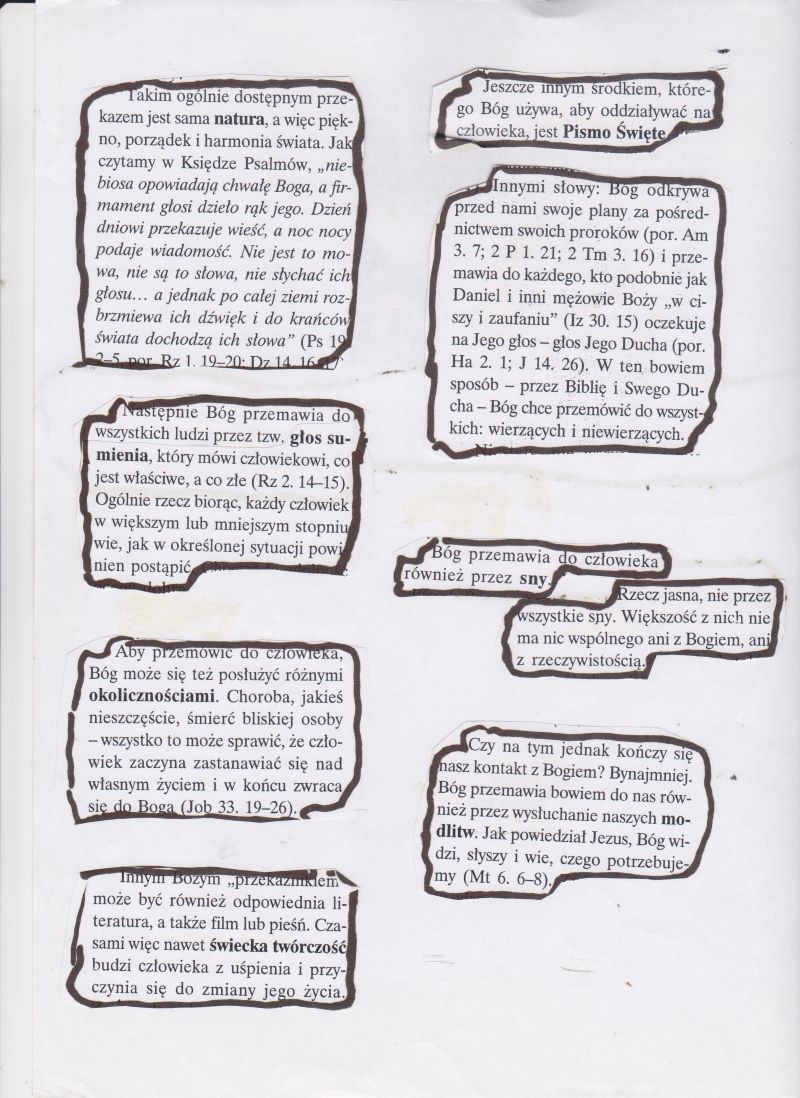 Takim ogólnie dostępnym prze-
kazem jest sama natura, a więc pięk-
no, porządek i harmonia świata. Jak
czytamy w Księdze Psalmów, „nie-
biosa opowiadają chwałę Boga, a fir-
mament głosi dzieło rąk jego. Dzień
dniowi przekazuje wieść, a noc nocy
podaje wiadomość. Nie jest to mo-
wa, nie są to słowa, nie słychać ich
głosu… a jednak po całej ziemi roz-
brzmiewa ich dźwięk i do krańców
świata dochodzą ich słowa” (Ps 19
2–5, por. Rz 1. 19–20; Dz 14. 16–17
Następnie Bóg przemawia do
wszystkich ludzi przez tzw. głos su-
mienia, który mówi człowiekowi, co
jest właściwe, a co złe (Rz 2. 14–15).
Ogólnie rzecz biorąc, każdy człowiek
w większym lub mniejszym stopniu
wie, jak w określonej sytuacji powi
nien postąpić.
Aby przemówić do człowieka,
Bóg może się też posłużyć różnymi
okolicznościami. Choroba, jakieś
nieszczęście, śmierć bliskiej osoby
– wszystko to może sprawić, że czło-
wiek zaczyna zastanawiać się nad
własnym życiem i w końcu zwraca
się do Boga (Job 33. 19–26).
Innym Bożym „przekaźnikiem”
może być również odpowiednia li-
teratura, a także film lub pieśń. Cza-
sami więc nawet świecka twórczość
budzi człowieka z uśpienia i przy-
czynia się do zmiany jego życia.
Jeszcze innym środkiem, które-
go Bóg używa, aby oddziaływać na
człowieka, jest Pismo Święte
Innymi słowy: Bóg odkrywa
przed nami swoje plany za pośred-
nictwem swoich proroków (por. Am
3. 7; 2 P 1. 21; 2 Tm 3. 16) i prze-
mawia do każdego, kto podobnie jak
Daniel i inni mężowie Boży „w ci-
szy i zaufaniu” (Iz 30. 15) oczekuje
na Jego głos – głos Jego Ducha (por.
Ha 2. 1; J 14. 26). W ten bowiem
sposób – przez Biblię i Swego Du-
cha – Bóg chce przemówić do wszyst-
kich: wierzących i niewierzących.
Bóg przemawia do człowieka
również przez sny.
Rzecz jasna, nie przez
wszystkie sny. Większość z nich nie
ma nic wspólnego ani z Bogiem, ani
z rzeczywistością.
Czy na tym jednak kończy się
nasz kontakt z Bogiem? Bynajmniej.
Bóg przemawia bowiem do nas rów-
nież przez wysłuchanie naszych mo-
dlitw. Jak powiedział Jezus, Bóg wi-
dzi, słyszy i wie, czego potrzebuje-
my (Mt 6. 6–8).